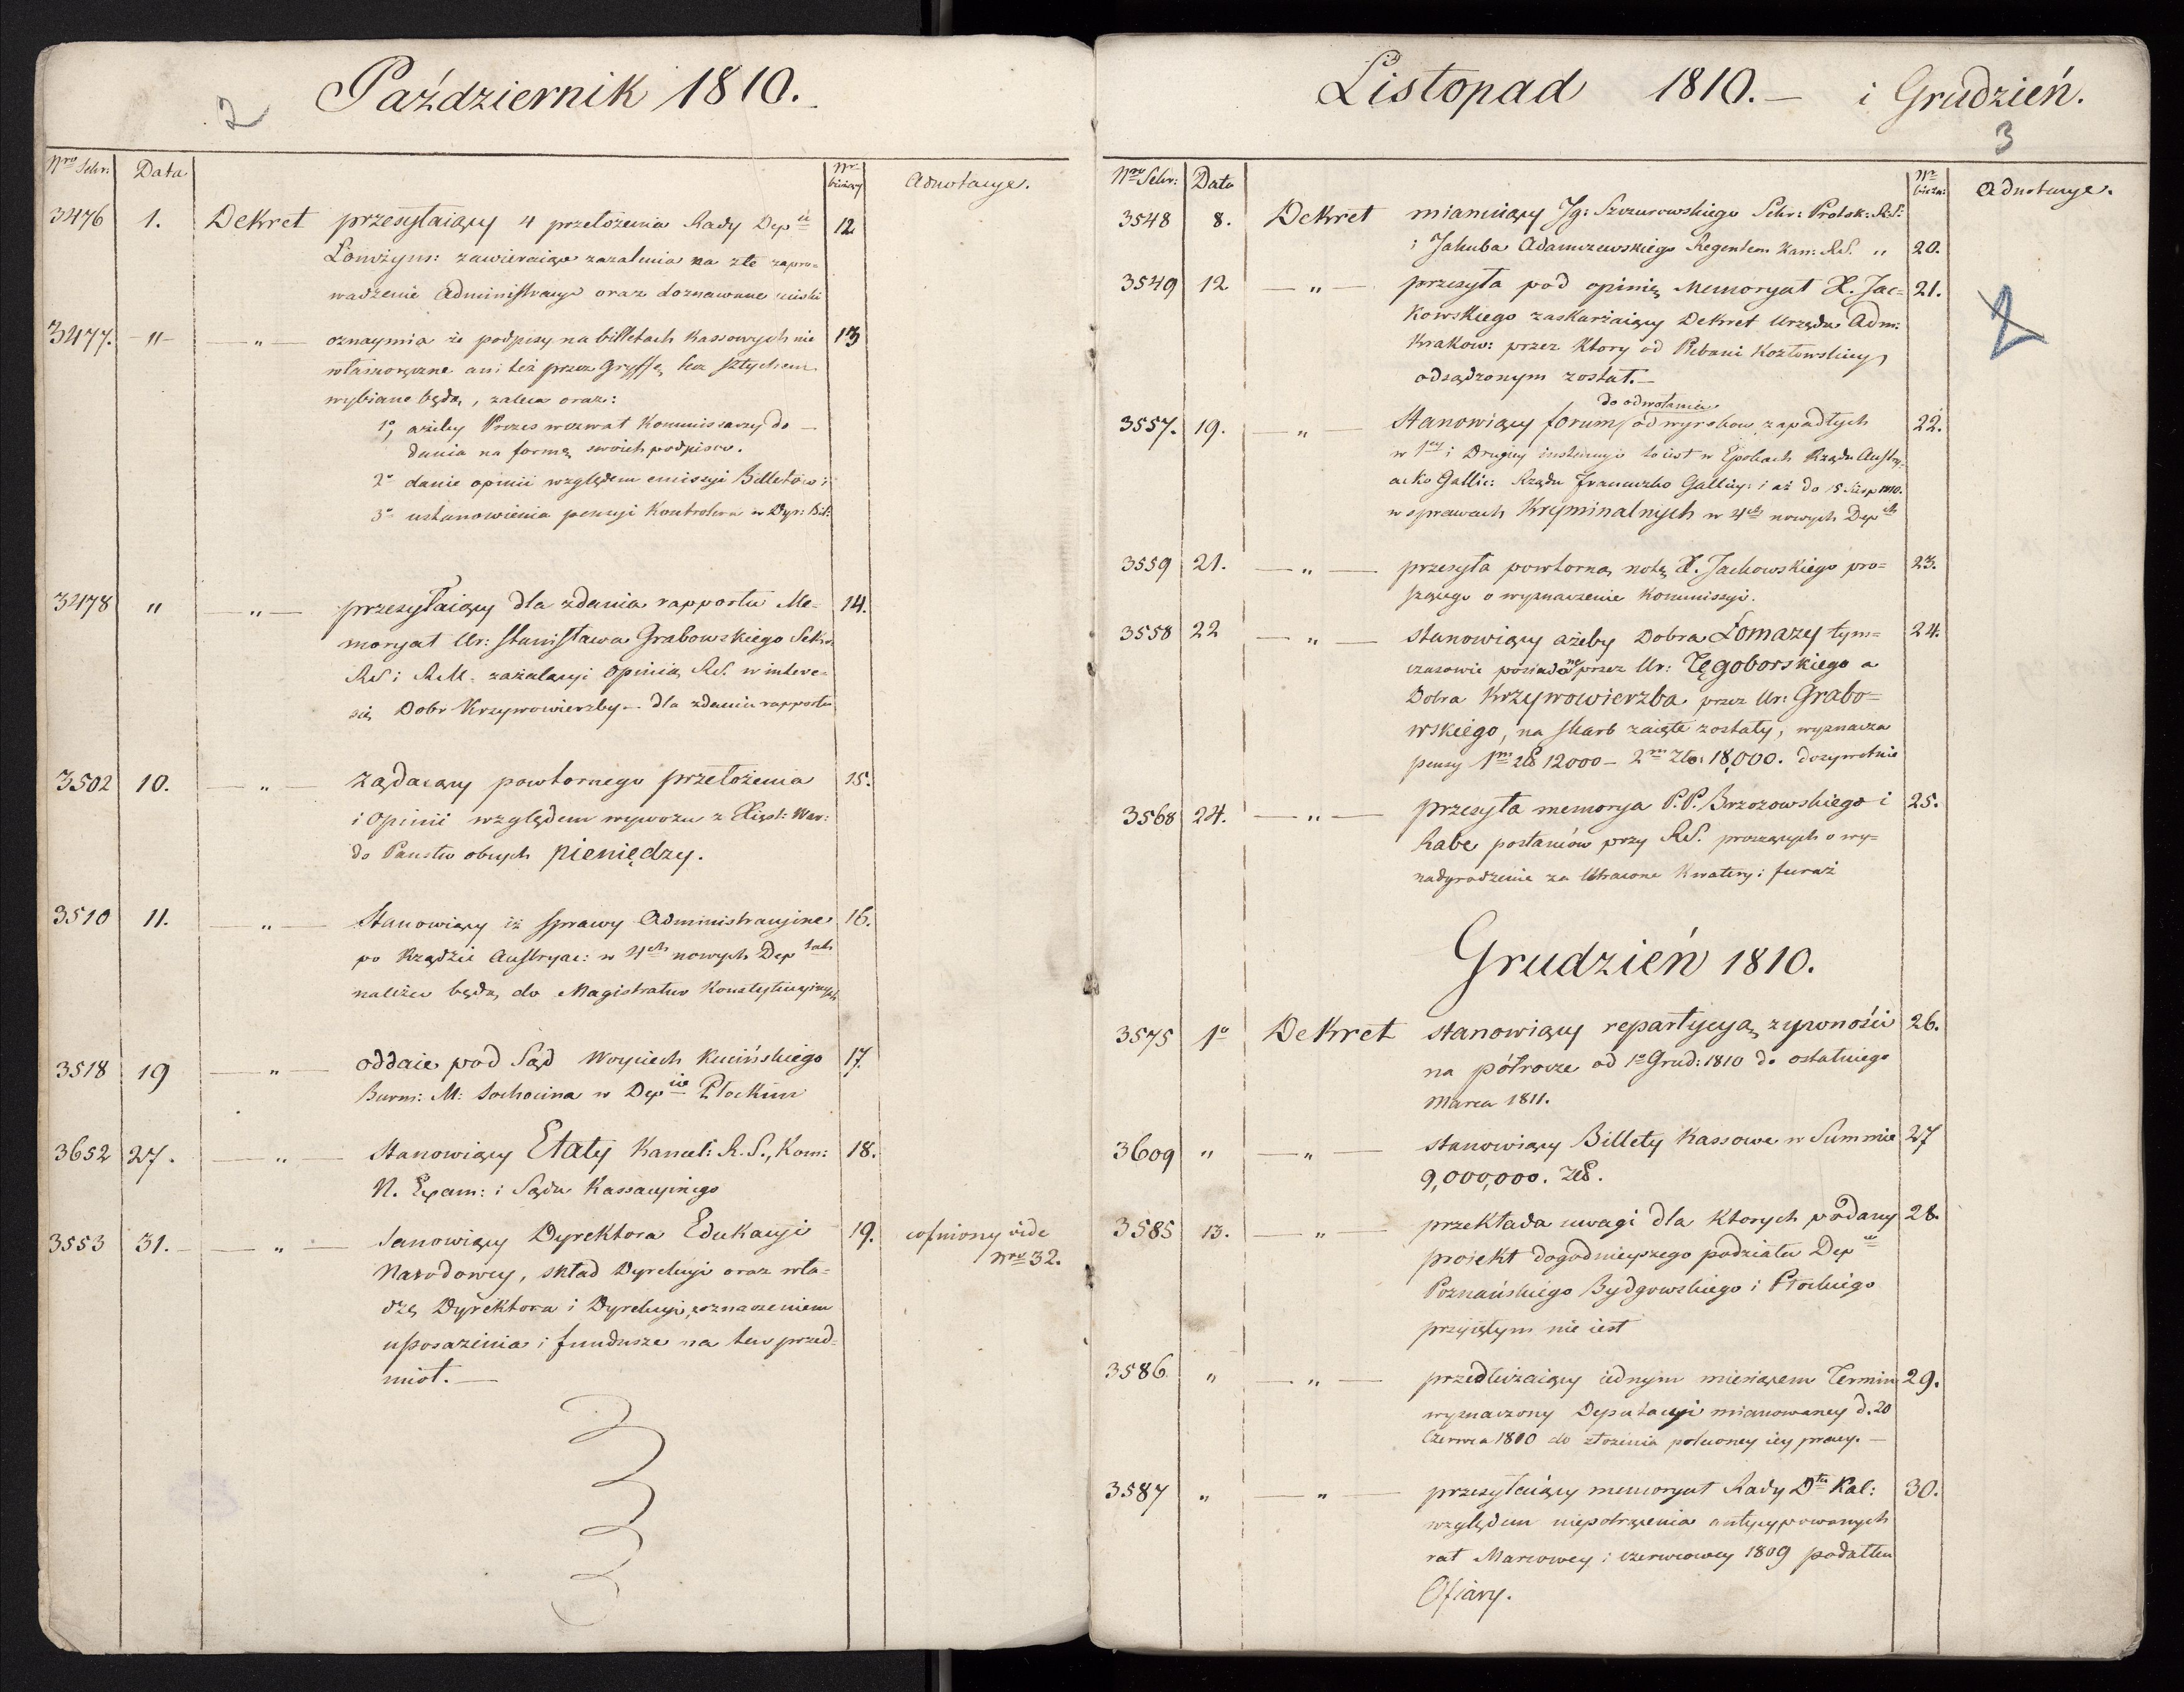 2
Październik 1810.
Nro Sekr: Data Nr bieżący Adnotacye.
3476 1. Dekret przesyłaiący 4 przełożenia Rady Dep 12
Łomżyns: zawieraiące zażalenia na złe zapro=
wadzenie Administracyi oraz doznawane uciski
3477. -"- -"- oznaymia że podpisy na billetach Kassowych nie 13
własnoręczne ani też przez Gryffę lecz sztychem
wybiane będą, zaleca oraz:
1o, ażeby Prezes wezwał Kommissarzy do
dania na formę swoich podpisów.
2o danie opinii względem emissyi Billetów i
3o ustanowienia pensyi Kontrolera w Dyr: Bil:
3478 " -"- przesyłaiący dla zdania rapportu Me= 14.
moryał Ur: Stanisława Grabowskiego Sekr:
RS i RM. zażalacyi Opinią RS. w intere=
sie Dobr Krzywowierzby - dla zdania rapportu
3502 10. -"- żądaiący powtornego przełożenia 15.
i Opinii względem wywozu z Xięst: War:
do Państw obcych pieniędzy.
3510 11. -"- Stanowiący iż sprawy Administracyine 16.
po Rządzie Austryac: w 4ch nowych Dep tach
należeć będą do Magistratur Konstytucyinych
3518 19 -"- oddaie pod Sąd Woyciech Kucińskiego 17.
Burm: M: Sochocina w Dep cie Płockim
3652 27. -"- Stanowiący Etaty Kancel: R. S., Kom: 18.
N. Exam: i Sądu Kassacyinego
3553 31. -"- Sanowiący Dyrektora Edukacyi 19. cofniony vide
Narodowey, skład Dyrekcyi oraz wła= Nro 32.
dzę Dyrektora i Dyrekcyi, oznaczeniem
uposażenia i fundusze na ten przed=
miot.
Listopad 1810. i Grudzień.
3
Nro Sekr: Data Nr bieżą: Adnotacye.
3548 8. Dekret mianuiący Jg: Szczurowskiego Sekr: Protok: RS:
i Jakuba Adamczewskiego Regentem Kan: RS. " 20.
3549 12 -"- przesyła pod opinię Memoryał X. Jac= 21.
kowskiego zaskarżaiący Dekret Urzędu Adm:
Krakow: przez Ktory od Plebani Kozłowskiey,
odsądzonym został.-
2
do odwołania
3557. 19. -"- Stanowiący forum od wyrokow zapadłych 22.
w 1ey i Drugiey instancyi to iest w Epokach Rządu Austry=
acko Gallic: Rządu Francuzko Gallicy: i aż do 15 Sierp 1810.
w sprawach Kryminalnych w 4ch nowych Dep ch
3559 21. -"- przesyła powtorną notę X. Jackowskiego pro= 23.
szącego o wyznaczenie Kommissyi.
3558 22 -"- stanowiący ażeby Dobra Łomazy tym= 24.
czasowie posiadane przez Ur: Tęgoborskiego a
Dobra Krzywowierzba przez Ur: Grabo=
wskiego, na skarb zaięte zostały, wyznacza
pensy 1m zł 12000 - 2m Zło: 18,000. dożywotnie
3568 24. -"- przesyła memorya P.P. Brzozowskiego i 25.
Rabe posłańcow przy RS. proszących o wy=
nadgrodzenie za Utracone Kwatery i furaż
Grudzień 1810.
3575 1o Dekret stanowiący repartycyą żywności 26.
na półrocze od 1o Grud: 1810 do ostatniego
Marca 1811.
3609 " -"- stanowiący Billety Kassowe w Summie 27
9,000,000. Zł.
3585 13. -"- przekłada uwagi dla Ktorych podany 28.
proiekt dogodnieyszego podziału Dep
Poznańskiego Bydgowskiego i Płockiego
przyiętym nie iest
3586 " -"- przedłużaiący iednym miesiącem Termin 29.
wyznaczony Deputacyi mianowaney d. 20
Czerwca 1810 do złożenia poleconey iey pracy. -
3587 " -"- przesyłaiący memoryał Rady D tu Kal: 30.
względem niepotrącenia antycypowanych
rat Marcowey i czerwcowey 1809 podatku
Ofiary.